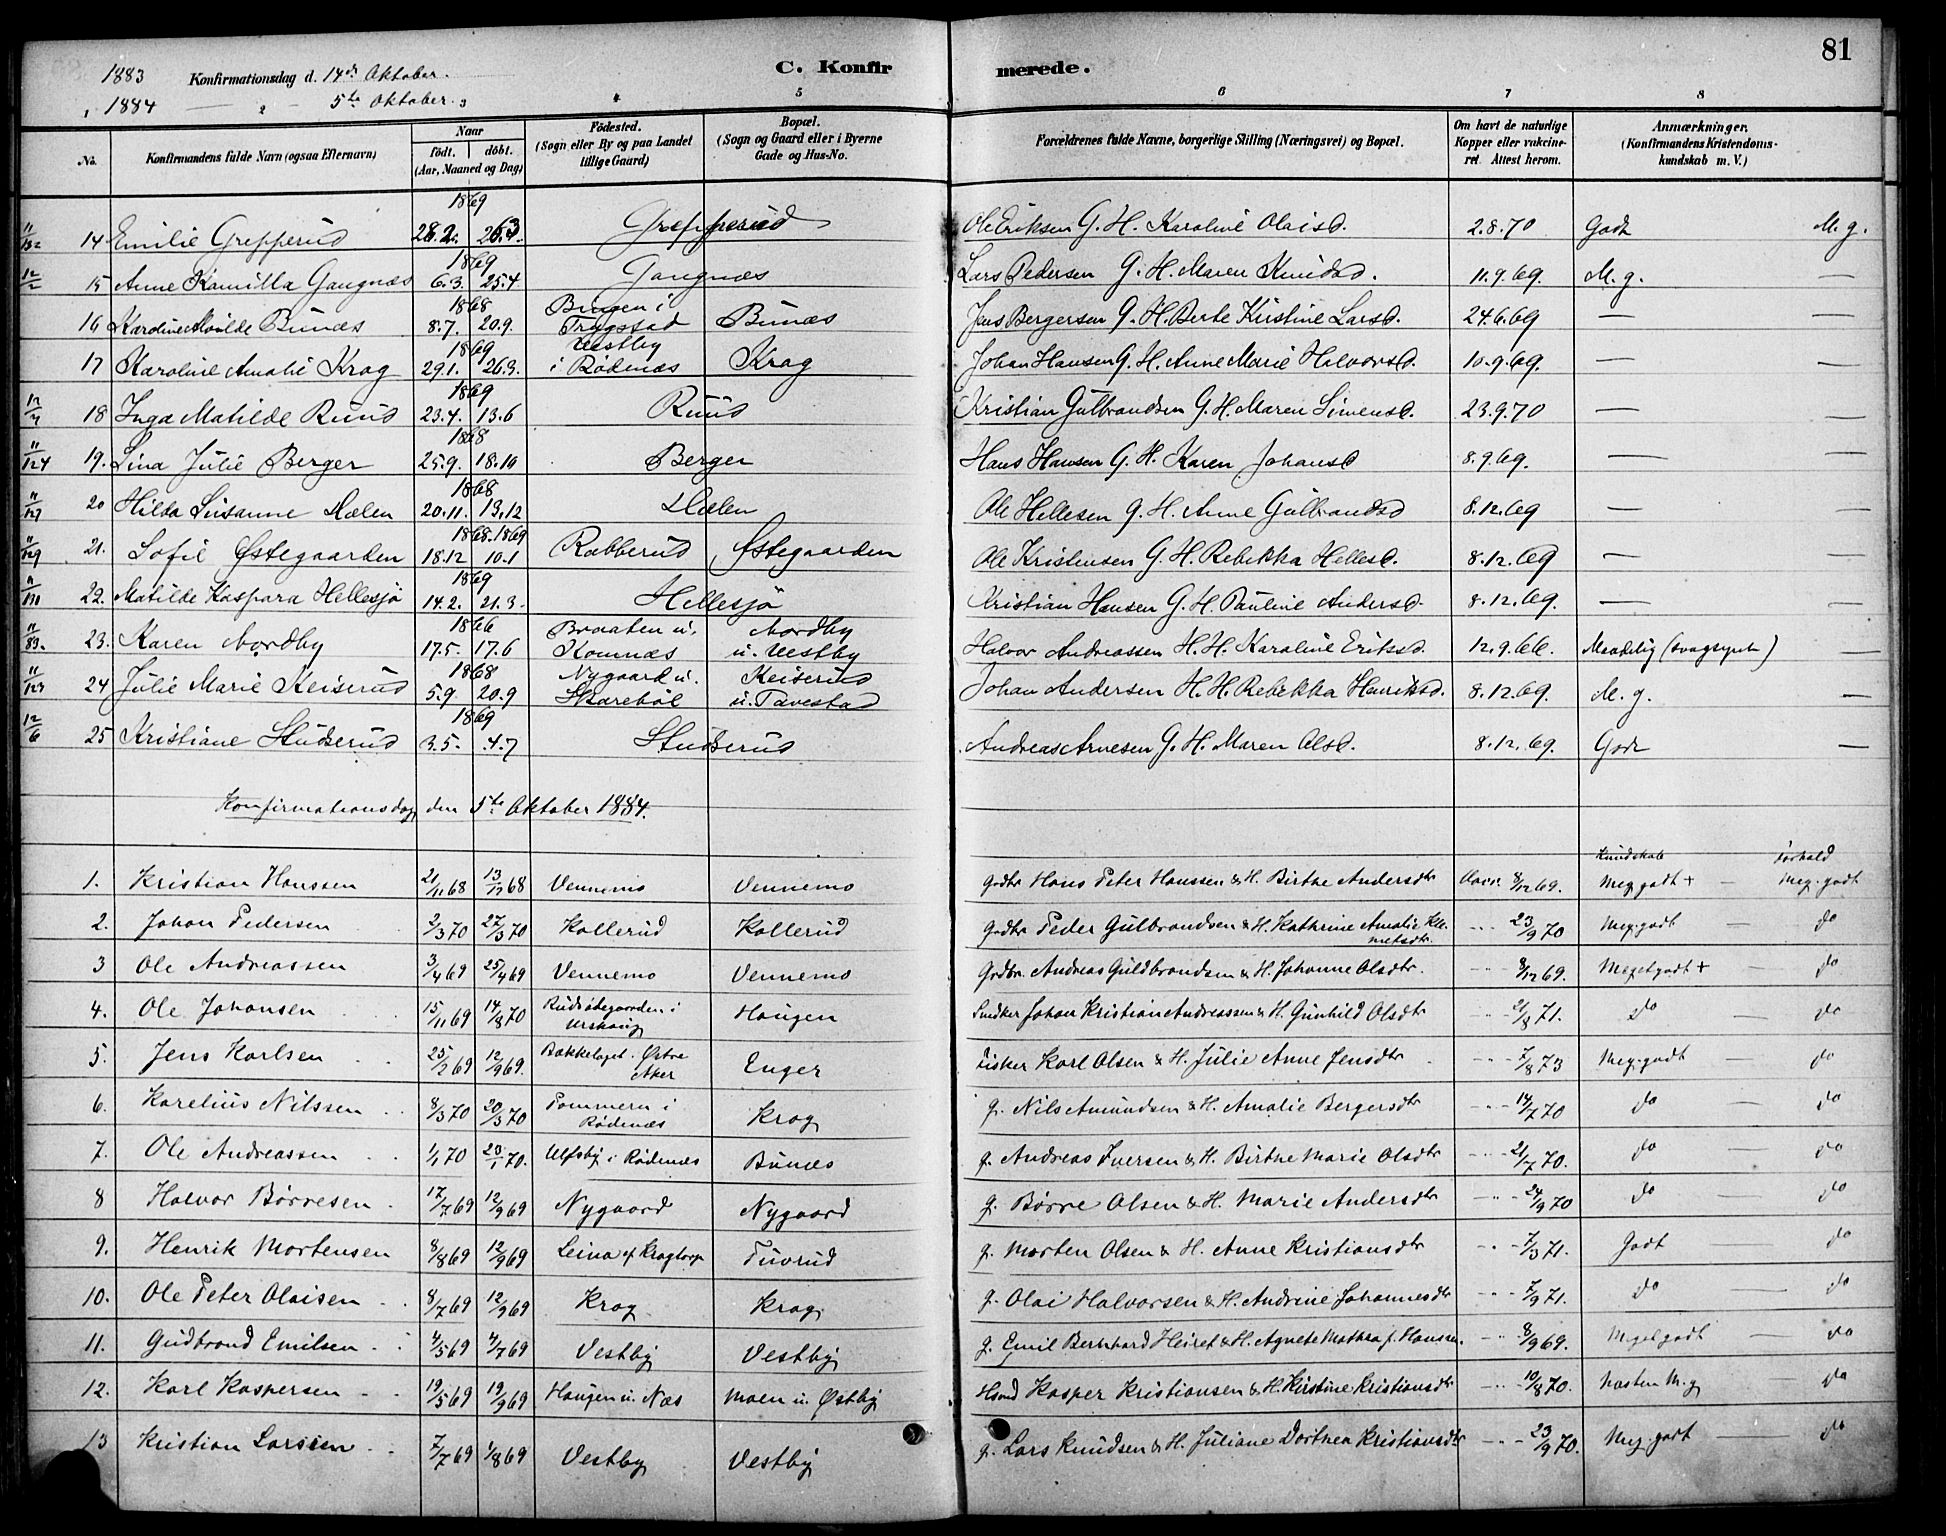 81
1883 Konfirmationsdag d. 14de Oktober.
1884 — " — 5te Oktober.
C. Konfirmerede.
4 5 6 7 8
No. Konfirmandens fulde Navn (ogsaa Efternavn) Naar født. døbt. (Aar, Maaned og Dag) Fødested. (Sogn eller By og paa Landet tillige Gaard) Bopæl. (Sogn og Gaard eller i Byerne Gade og Hus-No. Forældrenes fulde Navne, borgerlige Stilling (Næringsvei) og Bopæl. Om havt de naturlige Kopper eller vakcineret. Attest herom. Anmærkninger. (Konfirmandens Kristendomskundskab m. V.)
14 Emilie Grepperud 1869 Grepperud Ole Eriksen G. H. Karoline Olaisd. 2.8.70 Godt M. g.
12/2 15 Anne Kamilla Gangnæs 1869 6.3. 25.4. Gangnæs Lars Pedersen G. H. Maren Knudsd. 11.9.69. M. g. —
16 Karoline Bunæs 1868 8.7. 20.9. Bingen i Trygstad Bunæs Jens Bergersen G. H. Berte Kristine Larsd. 24.6.69 — —
17 Karoline Amalie Krog 1869 29.1. 26.3. Vestby i Rødenæs Krog Johan Hansen G. H. Anne Marie Halvorsd. 10.9.69. — —
18 Inga Matilde Ruud 1869 23.4. 13.6 Ruud Kristian Gulbrandsen G. H. Maren Simensd. 23.9.70 — —
11/124 19. Lina Julie Berger 1868 25.9. 18.10 Berger Hans Hansen G. H. Karen Johansd 8.9.69. — —
11/127 20 Hilda Susanne Mælen 1868 20.11. 13.12 Mælen Ole Hellesen G. H. Anne Gulbrandsd 8.12.69 — —
11/129 21. Sofie Østegaarden 1868.1869 18.12 10.1 Rabberud Østegaarden Ole Kristensen G. H. Rebekka Hellesd. 8.12.69 — —
11/130 22. Matilde Kaspara Hellesjø 1869 14.2. 21.3. Hellesjø Kristian Hansen G. H. Pauline Andersd. 8.12.69. — —
11/83. 23. Karen Nordby 1866 17.5. 17.6 Braaten u. Komnæs Nordby u. Vestby Halvor Andreassen H. H. Karoline Eriksd. 12.9.66. Maadelig (svagsynt) —
11/123 24 Julie Marie Keiserud 1868 5.9. 20.9 Nygaard u. Skarebøl Keiserud u. Tavestad Johan Andersen H. H. Rebekka Henriksd. 8.12.69. M. g. —
12/6 25 Kristiane Studserud 1869 3.5. 4.7 Studserud Andreas Arnesen G. H. Maren Olsd. 8.12.69. Godt —
Konfirmationsdag den 5te Oktober 1884.
Kundskab Forhold
1. Kristian Hanssen 21/11 68 13/12 68 Vennemo Vennemo Gdbr Hans Peter Hanssen & H. Birthe Andersdtr 8/12 69. Meg. godt + — Meg. godt
2. Johan Pedersen 2/3 70 27/3 70 Kollerud Kollerud Gdbr Peder Gulbrandsen & H. Kathrine Amalie Klemetsdtr. 23/9 70 Meg. godt — do
3 Ole Andreassen 3/4 69 25/4 69 Vennemo Vennemo Grdbr. Andreas Guldbrandsen & H. Johanne Olsdtr. 8/12 69. Meget godt + — do
4. Ole Johansen 15/11 69 14/8 70 Rudsødegaarden i Urskoug Haugen Snedker Johan Kristian Andreassen & H. Gunhild Olsdtr 21/8 71. do — do
5. Jens Karlsen 25/2 69 12/9 69. Bækkelaget. Østre Aker Enger Fisker Karl Olsen & H. Julie Anne Jensdtr 7/8 73 Meg. godt — do
6. Karelius Nilssen 8/3 70 20/3 70 Tommern i Rødenæs Krog g. Nils Amundsen & H. Amalie Bergersdtr 14/7 70 do — do
7. Ole Andreassen 1/1 70 23/1 70. Ulfsby i Rødenæs Bunæs g. Andreas Iversen & H. Birthe Marie Olsdtr 21/7 70. do — do
8 Halvor Børresen 17/7 69 12/9 69 Nygaard Nygaard g. Børre Olsen & H. Marie Andersdtr 24/9 70 do — do
9. Henrik Mortensen 8/8 69 12/9 69 Leina af Kragtorp Tuvrud g. Morten Olsen & H. Anne Kristiansdtr 7/3 71. Godt — do
10. Ole Peter Olaisen 8/7 69 12/9 69 Krog Krog g. Olai Halvorsen & H. Andrine Johannesdtr 7/9 71. do — do
11. Gudbrand Emilsen 4/5 69 4/7 69 Vestby Vestby g. Emil Bernhard Heiret & H. Agnete Mathea f. Hansen. 8/9 69. Meget godt — do
12. Karl Kaspersen 19/5 69 19/9 69 Haugen u. Næs Moen u. Østby Hsmd Kasper Kristiansen & H. Kristine Kristiansdtr 10/8 70. Næsten M. g — do
13 Kristian Larssen 7/7 69 1/8 69 Vestby Vestby g. Lars Knudsen & H. Juliane Dorthea Kristiansdtr 23/9 70. Meg. godt — do